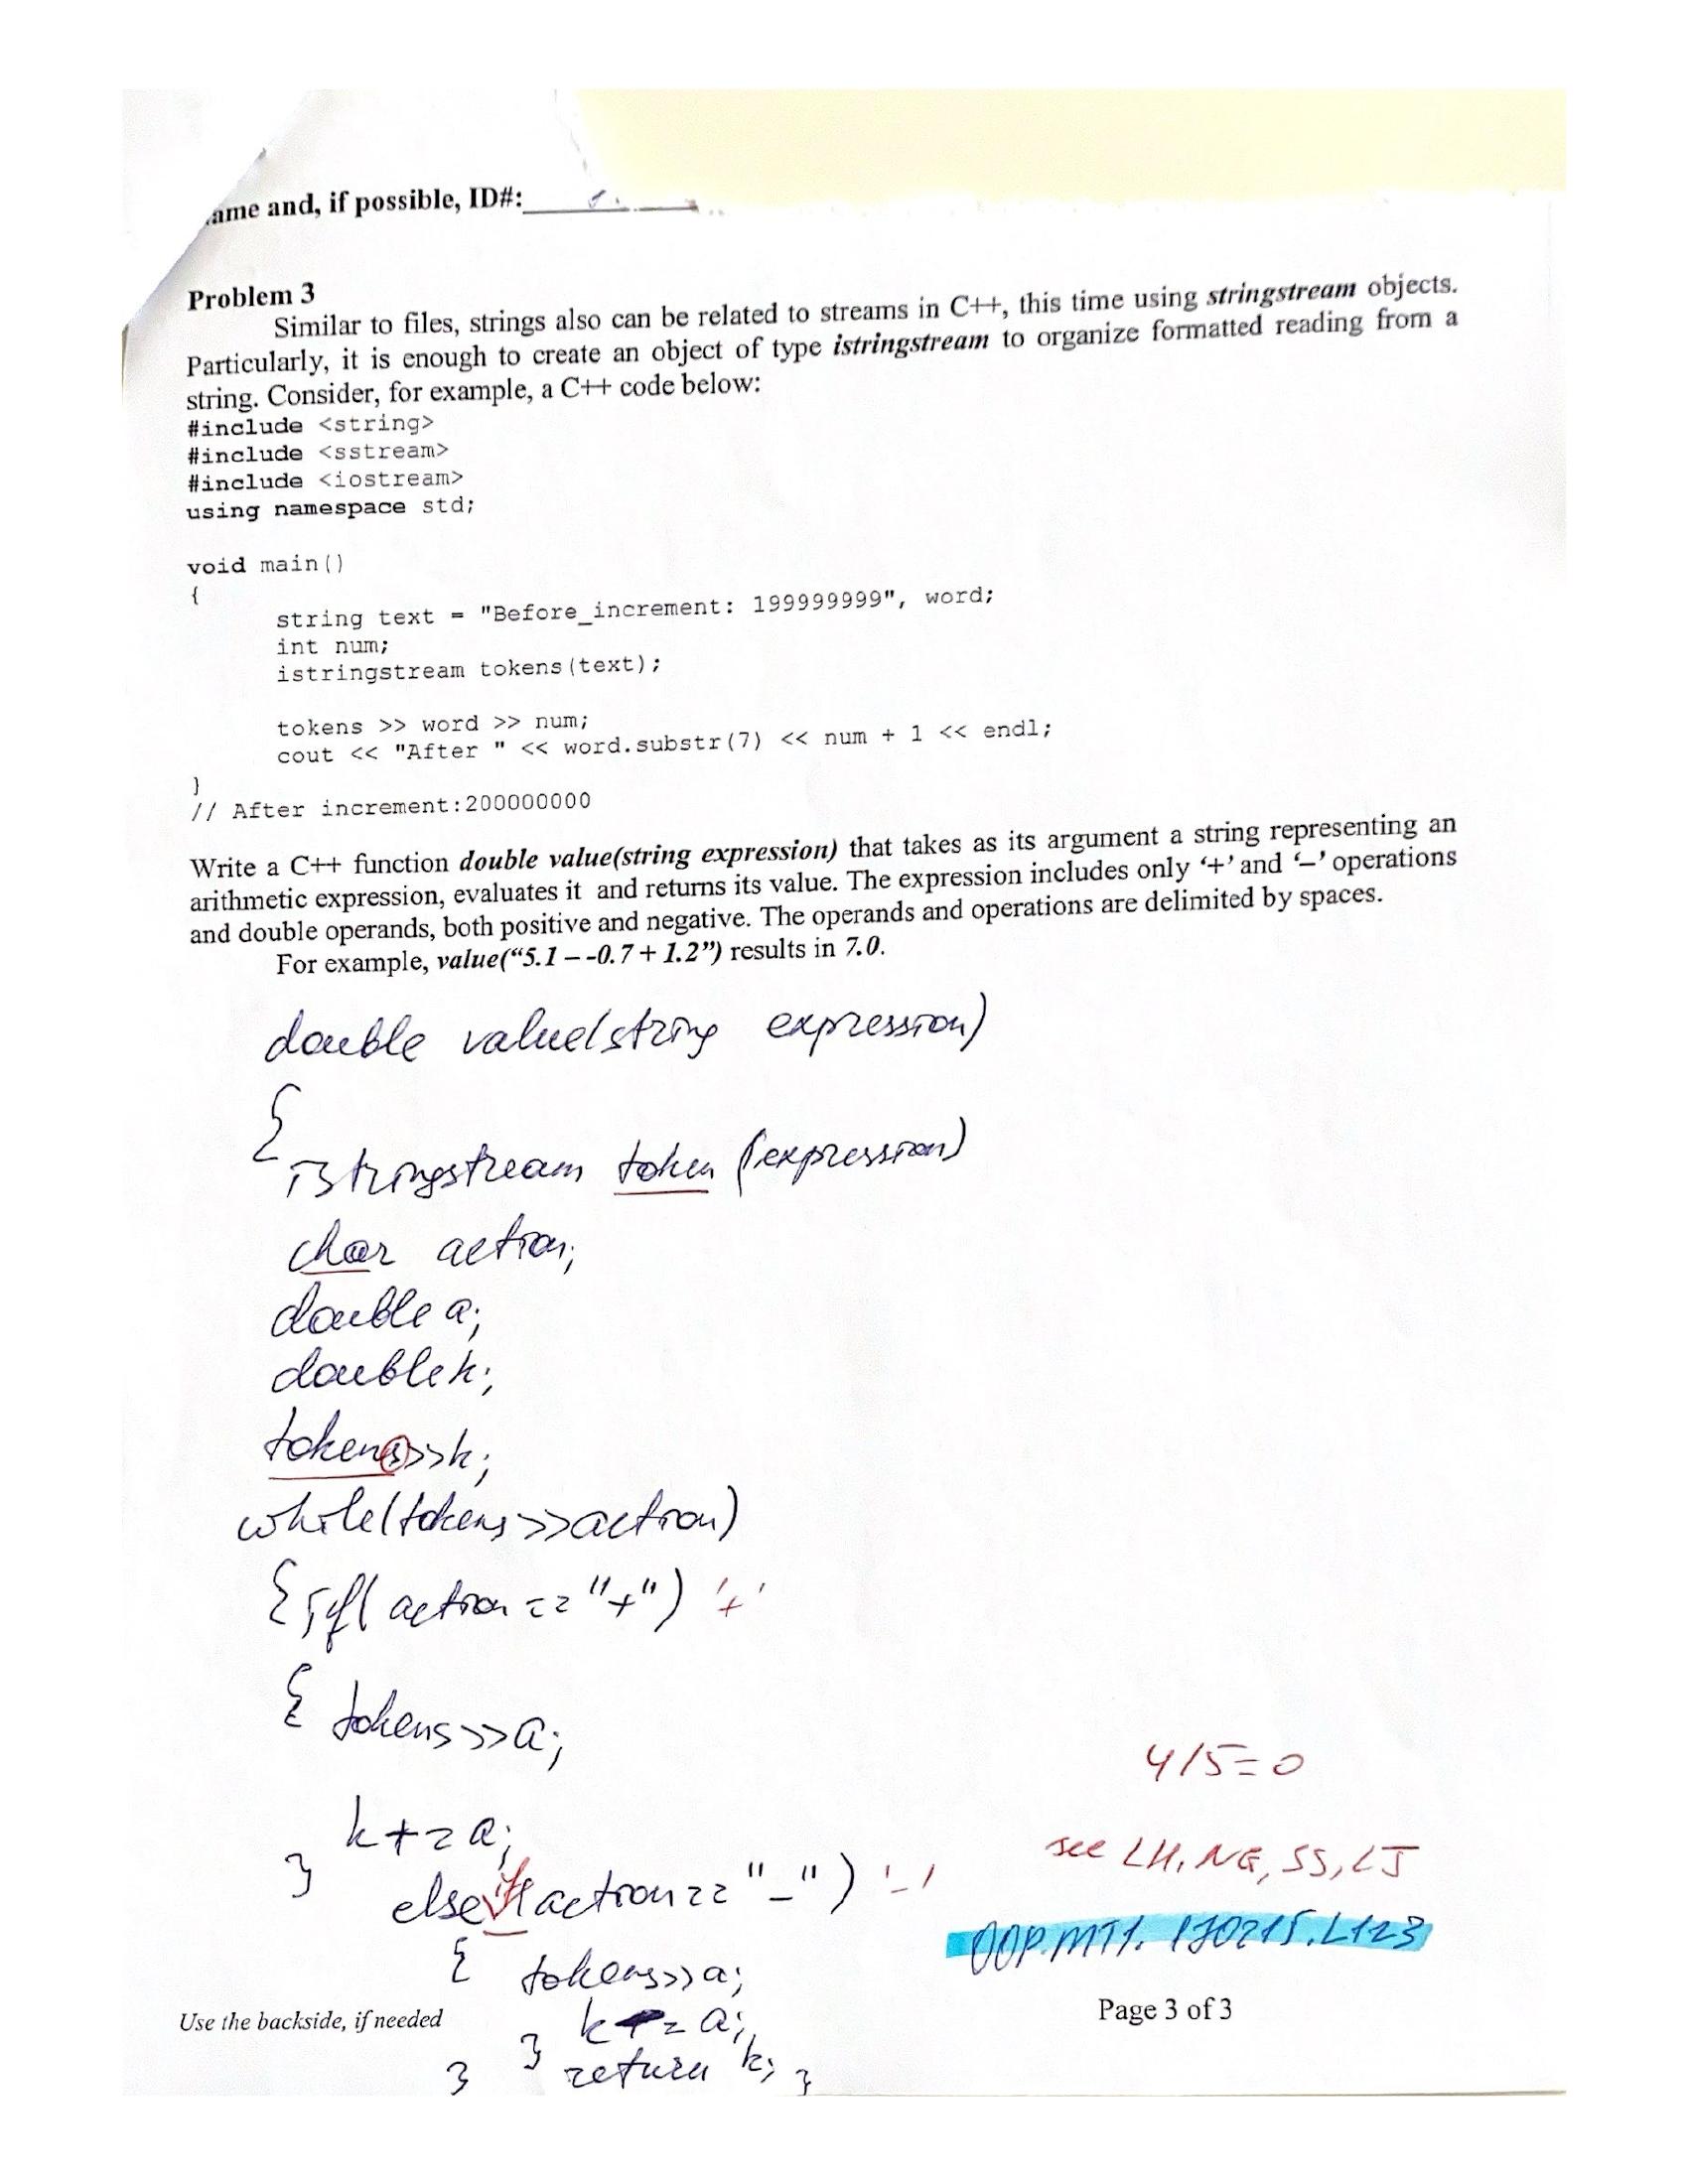 ame and, if possible, ID#:
Problem 3
Similar to files, strings also can be related to streams in C++, this time using stringstream objects.
Particularly, it is enough to create an object of type istringstream to organize formatted reading from a
string. Consider, for example, a C++ code below:
#include <string>
#include <sstream>
#include <iostream>
using namespace std;
void main()
{
string text = "Before_increment: 199999999", word;
int num;
istringstream tokens(text);
tokens >> word >> num;
cout << "After " << word.substr(7) << num + 1 << endl;
}
// After increment:200000000
Write a C++ function double value(string expression) that takes as its argument a string representing an
arithmetic expression, evaluates it and returns its value. The expression includes only ‘+’ and ‘–’ operations
and double operands, both positive and negative. The operands and operations are delimited by spaces.
For example, value(“5.1 – -0.7 + 1.2”) results in 7.0.
double value(string expression)
{
istringstream token (expression)
char action;
double a;
double k;
tokens>>k;
while(tokens>>action)
{ if( action == "+") '+'
{ tokens>>a;
4/5=0
k+=a;
see LH, NG, SS, LJ
}
else if(action == "-") '-'
OOP.MT1. 170215.L123
{ tokens>>a;
Use the backside, if needed
Page 3 of 3
k-=a;
}
} return k; }